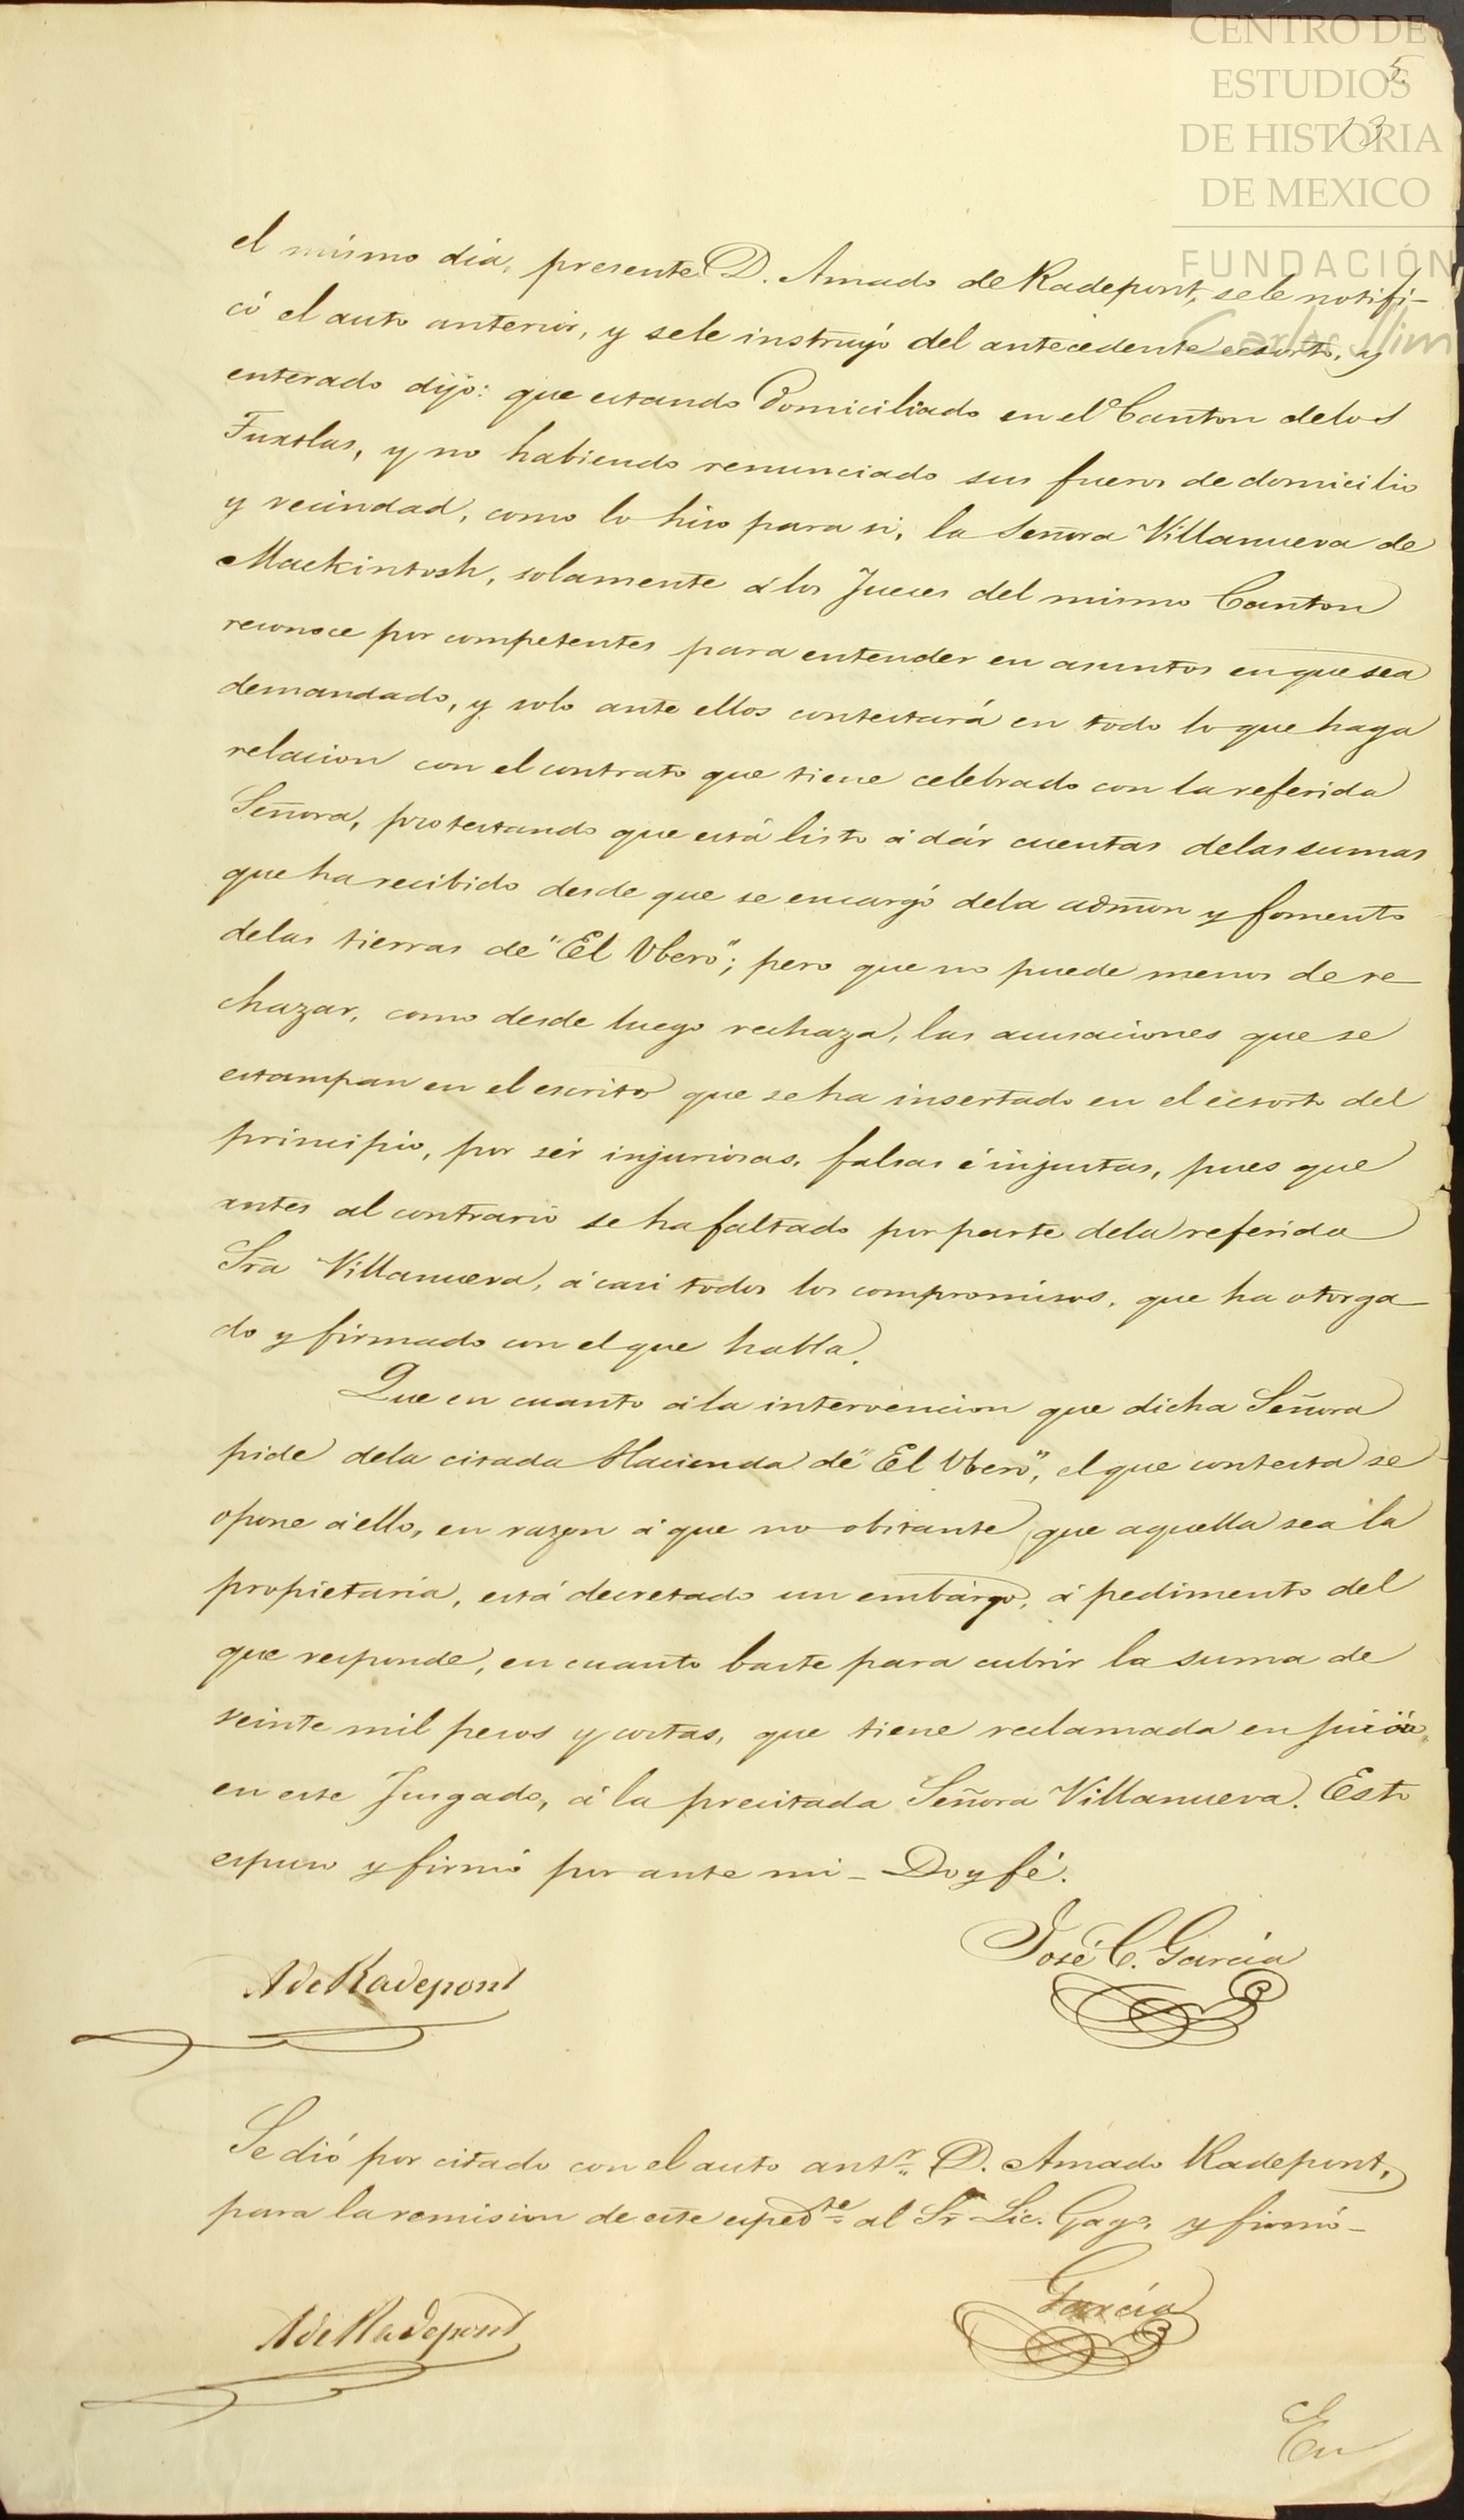 CENTRO DE
ESTUDIOS
DE HISTORIA
DE MEXICO
FUNDACIÓN
Carlos Slim
5.
13
el mismo dia, presente D. Amado de Radepont, se le notifi-
có el auto anterior, y se le instruyó del antecedente ecsorto, y
enterado dijo: que estando domiciliado en el Canton de los
Tuxtlas, y no habiendo renunciado sus fueros de domicilio
y vecindad, como lo hiso para si, la Señora Villanueva de
Mackintosh, solamente á los Jueces del mismo Canton
reconoce por competentes para entender en asuntos en que sea
demandado, y solo ante ellos contestará en todo lo que haga
relacion con el contrato que tiene celebrado con la referida
Señora, protestando que está listo á dár cuentas de las sumas
que ha recibido desde que se encargó de la admon y fomento
de las tierras de "El Ubero"; pero que no puede menos de re-
chazar, como desde luego rechaza, las acusaciones que se
estampan en el escrito que se ha insertado en el ecsorto del
principio, por sér injuriosas, falsas é injustas, pues que
antes al contrario se ha faltado por parte de la referida
Sra Villanueva, á casi todos los compromisos, que ha otorga-
do y firmado con el que habla.
Que en cuanto á la intervencion que dicha Señora
pide de la citada Hacienda de "El Ubero", el que contesta se
opone á ello, en razon á que no obstante que aquella sea la
propietaria, está decretado un embargo, á pedimento del
que responde, en cuanto baste para cubrir la suma de
veinte mil pesos y costas, que tiene reclamada en juicio
en este Jusgado, á la precitada Señora Villanueva. Esto
espuso y firmó por ante mi - Doy fé.
José C. García
A de Radepont
Se dió por citado con el auto antr. D. Amado Radepont,
para la remision de este espedte al Sr Lic. Gago, y firmó -
García
A de Radepont
En